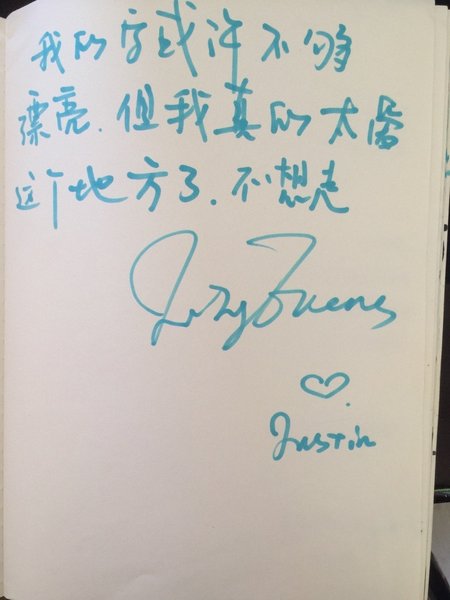 我的字或许不够
漂亮.但我真的太爱
这个地方了.不想走
Justin